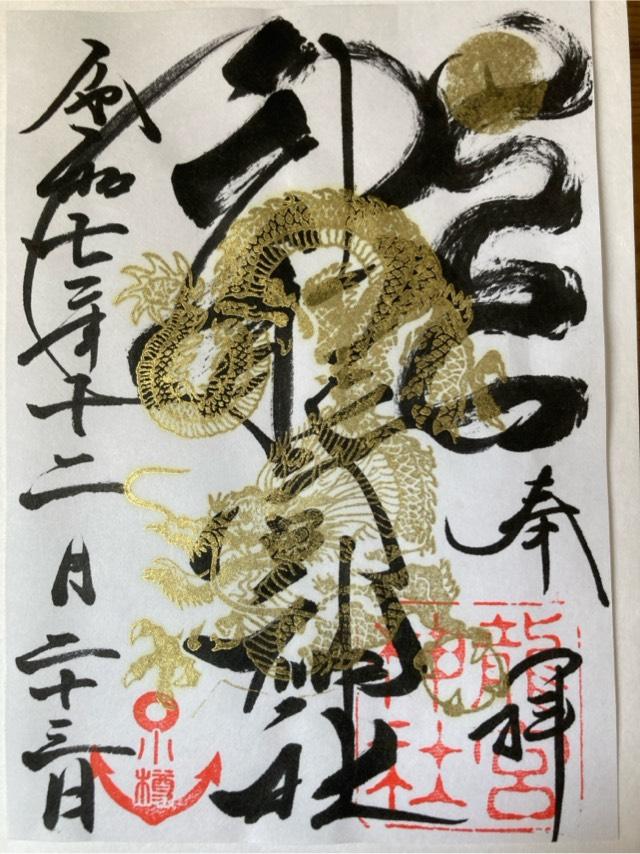 奉拝
龍宮神社
龍宮
神社
令和七年十二月二十三日
小樽